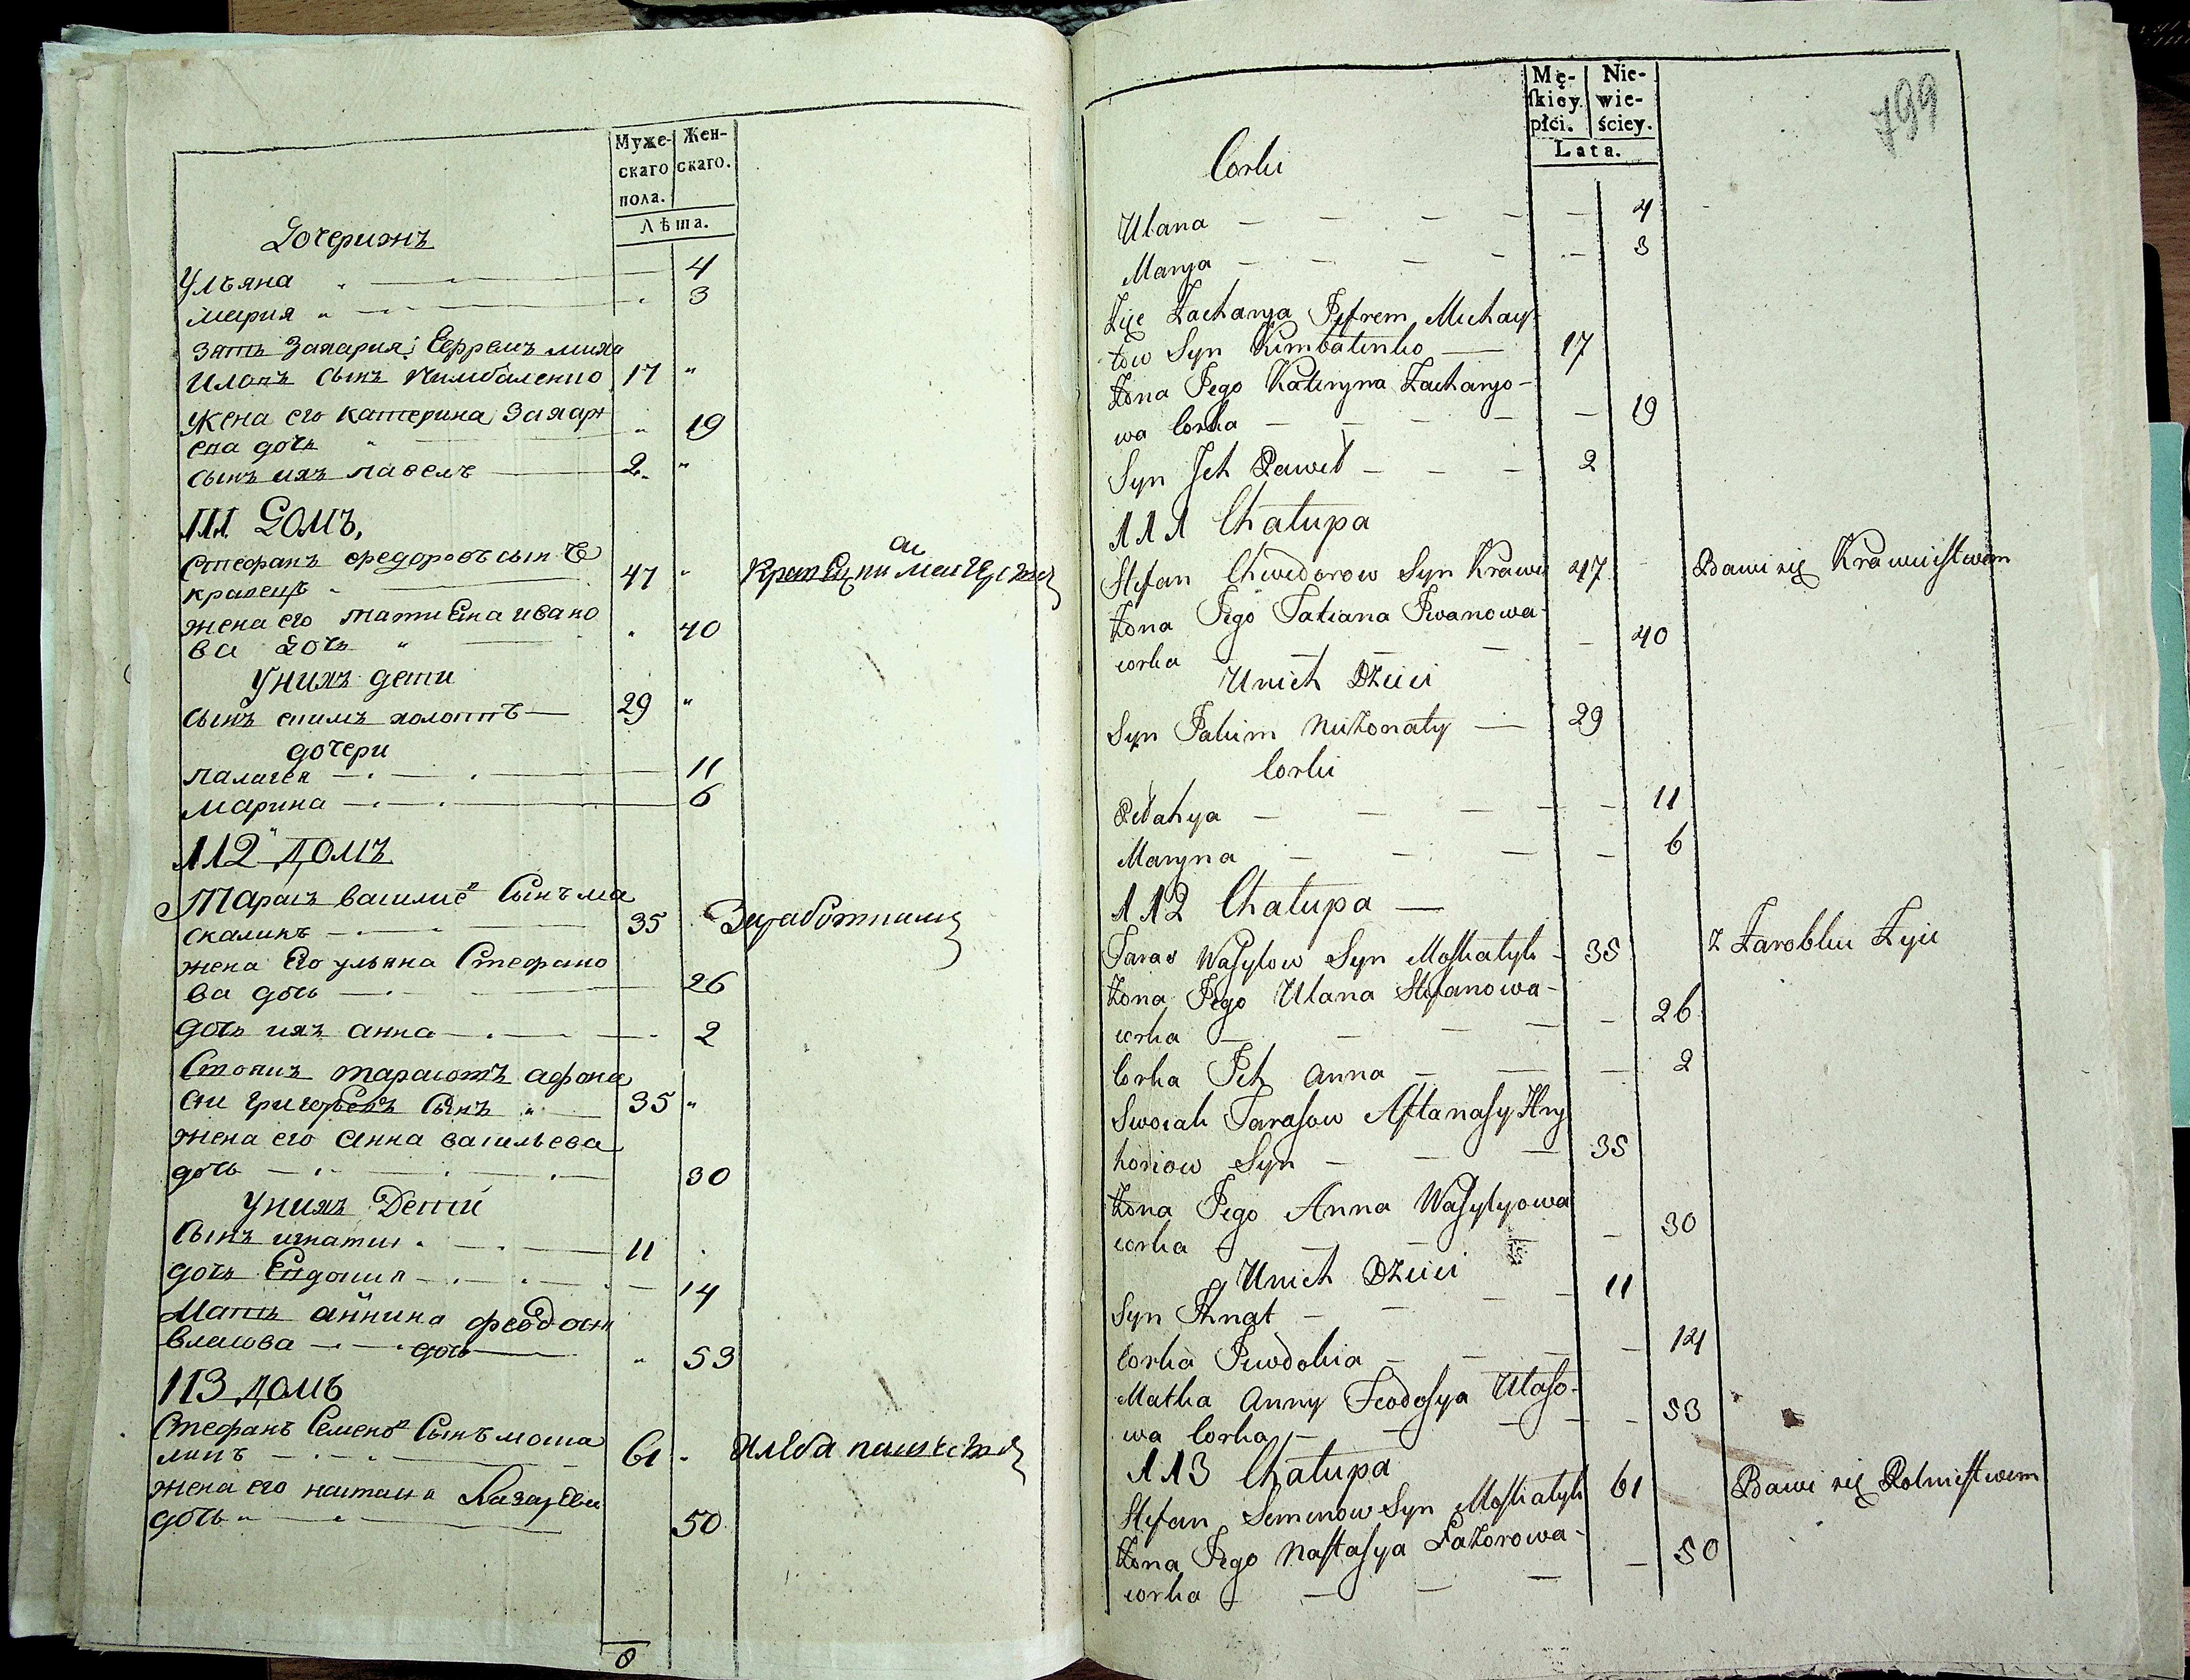 Муже- Жен-
скаго скаго.
пола.
Лѣта.
Дочерихъ
Ульяна 4
мария 3
Зять Захария Ефремъ миха
иловъ сынъ Кимбаленко 17
Жена его катерина Захарı
ева дочь 19
сынъ ихъ павелъ 2
111 Домъ,
Стефанъ федоровъ сынъ
кравецъ 47
жена его татиена ивано
ва дочь 40
Унихъ дети
сынъ екимъ холоптъ 29
дочери
палагея 11
марина 6
112 домъ
Тарасъ василиев Сынъ мо
скаликъ 35 Заработками
жена Его ульяна Стефано
ва дочь 26
дочь ихъ анна 2
Своякъ тарасовъ афона
си григорьевъ Сынъ 35
жена его анна васильева
дочь 30
Унихъ Дети
Сынъ игнатии 11
дочь Евдокия 14
Мать аннина феодосия
власова дочь 53
113 домъ
Стефанъ Семенов Сынъ моска
ликъ 61
жена его настасия Лазарева
дочь 50
Mę- Nie-
skiey wie-
płci. ściey.
Lata.
799
Corki
Ulana 4
Marya 3
Zięc Zacharya Jefrem Michay-
łow Syn Kimbalenko 17
Żona Jego Kateryna Zacharyo-
wa Corka 19
Syn Ich Paweł 2
111 Chałupa
Stefan Chwedorow Syn Krawec 47 Bawi się Krawiectwem
Żona Jego Tatiana Iwanowa
corka 40
Unich Dzieci
Syn Jakim Nieżonaty 29
Corki
Pełahya 11
Maryna 6
112 Chałupa
Taras Wasylow Syn Moskalyk 35 z Zarobku Żyie
Żona Jego Ulana Stefanowa
corka 26
Corka Ich Anna 2
Swoiak Tarasow Aftanasy Hry
horiow Syn 35
Żona Jego Anna Wasylyowa
corka 30
Unich Dzieci
Syn Ihnat 11
Corka Jewdokia 14
Matka Anny Feodosya Własο-
wa Corka 53
113 Chałupa
Stefan Semenow Syn Moskalyk 61 Bawi się Rolnictwem
Żona Jego Nastasya Łazorowa
corka 50